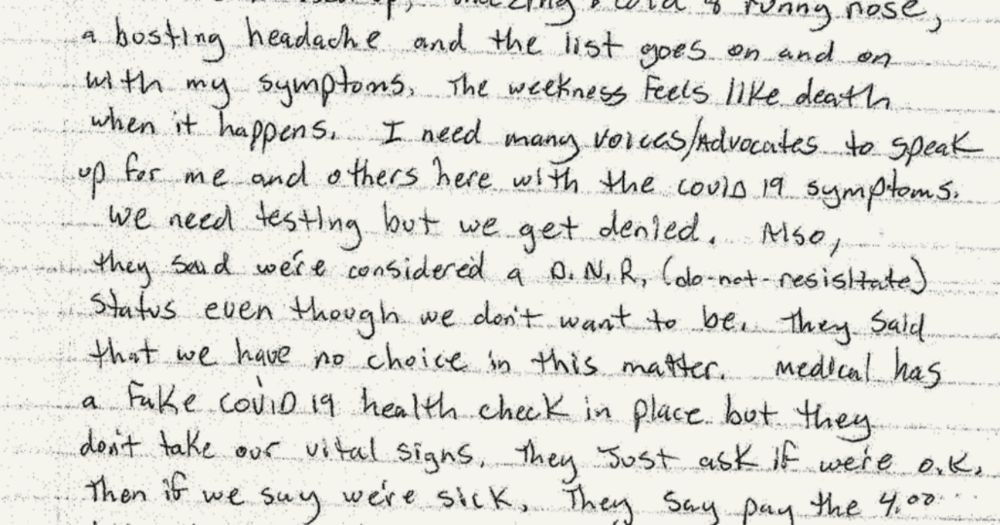 runny nose,
a bosting headache and the list goes on and on
with my symptoms. The weekness Feels like death
when it happens. I need many voices/Advocates to speak
up for me and others here with the covid 19 symptoms.
We need testing but we get denied. Also,
they said we're considered a D.N.R. (do-not-resisitate)
status even though we don't want to be. They said
that we have no choice in this matter. Medical has
a Fake COVID 19 health check in place but they
don't take our vital signs. They Just ask if we're o.k.
Then if we say we're sick. They say pay the 4.00